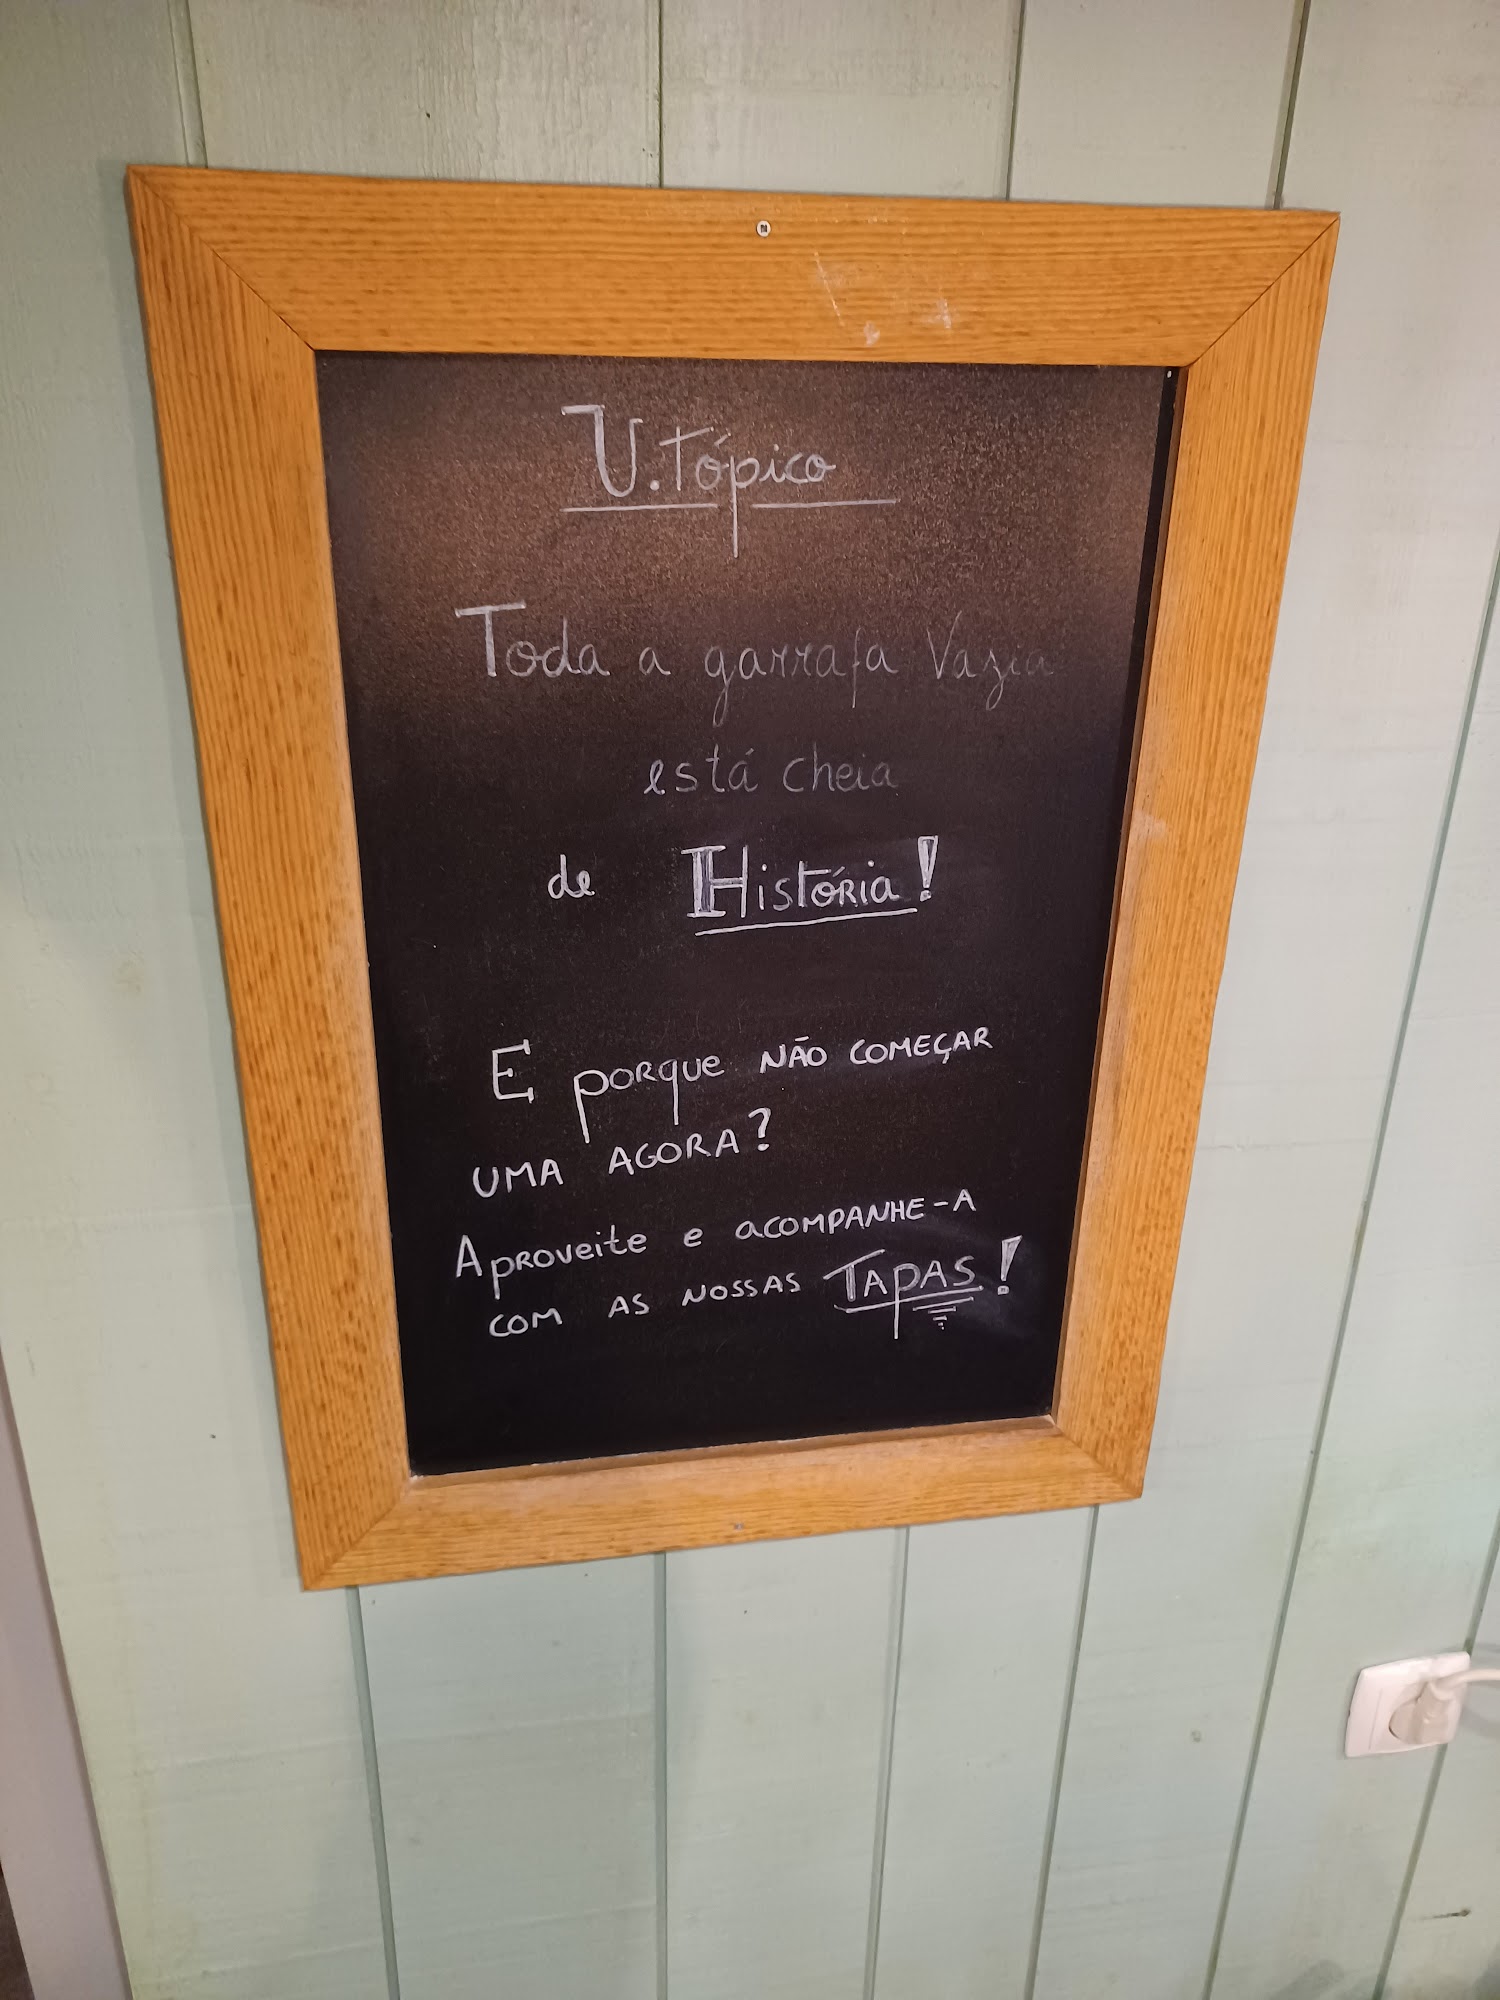 U.tópico
Toda a garrafa Vazia
está cheia
de História!
E porque NÃO COMEÇAR
UMA AGORA?
Aproveite e acompanhe-a
com as nossas Tapas!